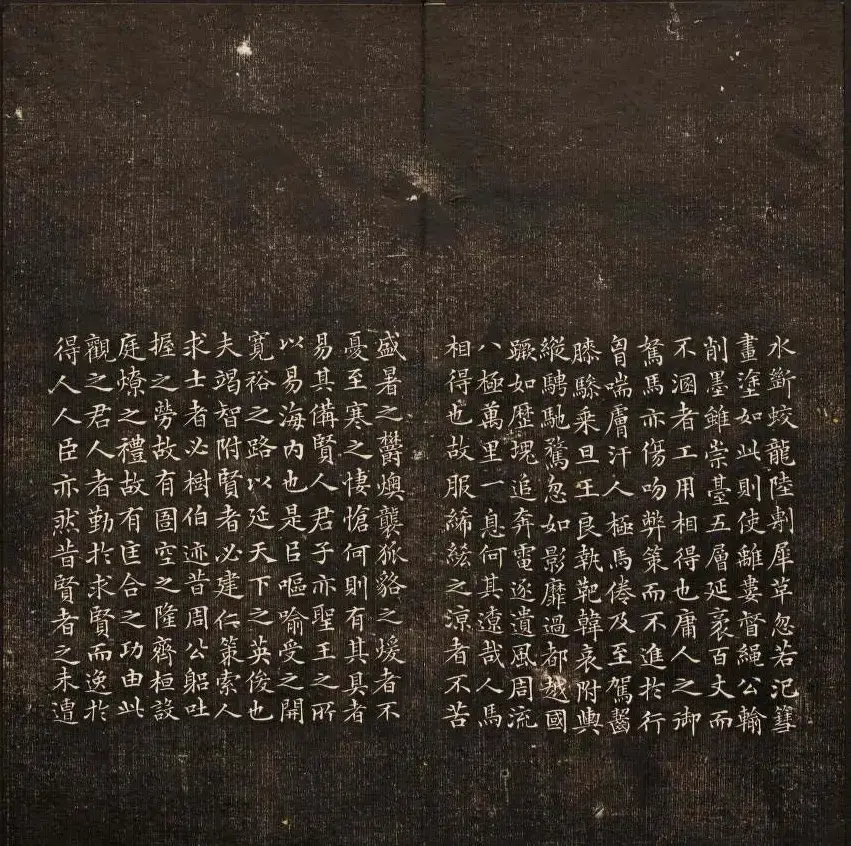 水斷蛟龍陸剸犀草忽若汜篲
畫塗如此則使離婁督繩公輸
削墨雖崇臺五層延袤百丈而
不溷者工用相得也庸人之御
駑馬亦傷吻弊策而不進於行
胷喘膚汗人極馬倦及至駕齧
膝驂乘旦王良執靶韓哀附輿
縱騁馳騖忽如影靡過都越國
蹶如歷塊追奔電逐遺風周流
八極萬里一息何其遼哉人馬
相得也故服絺綌之涼者不苦
盛暑之鬱燠襲狐貉之煖者不
憂至寒之悽愴何則有其具者
易其備賢人君子亦聖王之所
以易海內也是㠯嘔喻受之開
寬裕之路以延天下之英俊也
夫竭智附賢者必建仁策索人
求士者必樹伯迹昔周公躳吐
握之勞故有圄空之隆齊桓設
庭燎之禮故有匡合之功由此
觀之君人者勤於求賢而逸於
得人人臣亦然昔賢者之未遭